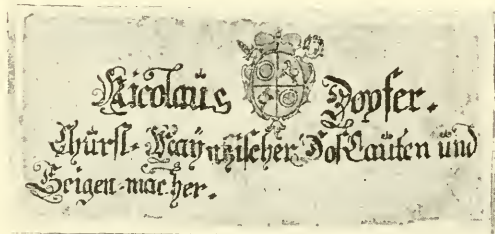 Nicolaüs Dopfer.
Chürfl. Maÿntzischer Hof Lauten und
Geigen-macher.